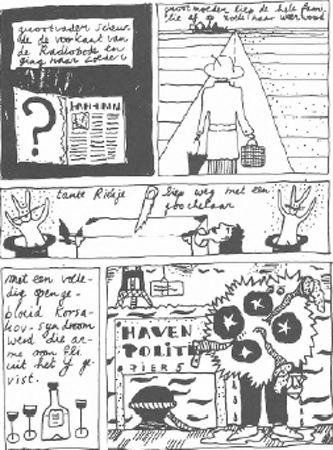 grootvader scheur-
de de voorkant van
de Radiobode en
ging naar zolder
?
grootmoeder liep de hele fami-
lie af op zoek naar
tante Riekje
liep weg met een
goochelaar
met een volle-
dig openge-
bloeid Korsa-
kov-syndroom
werd die ar-
me oom
uit het ij ge-
vist.
HAVEN
POLITI
PIER 5